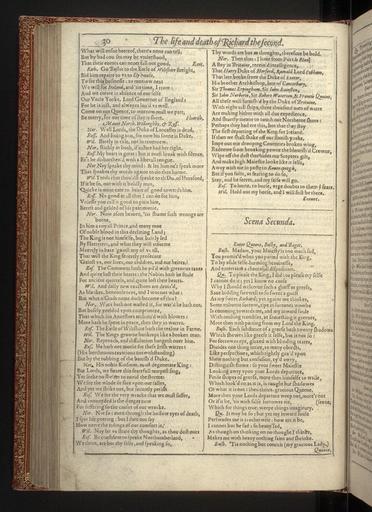 30 The life and death of Richard the second.
What will ensue heereof, there's none can tell.
But by bad courses may be vnderstood,
That their euents can neuer fall out good. Exit.
Rich. Go Bushie to the Earle of Wiltshire streight,
Bid him repaire to vs to Ely house,
To see this businesse: to morrow next
We will for Ireland, and 'tis time, I trow:
And we create in absence of our selfe
Our Vncle Yorke, Lord Gouernor of England:
For he is iust, and alwayes lou'd vs well.
Come on our Queene, to morrow must we part,
Be merry, for our time of stay is short. Flourish.
Manet North. Willoughby, & Ross.
Nor. Well Lords, the Duke of Lancaster is dead.
Ross. And liuing too, for now his sonne is Duke.
Wil. Barely in title, not in reuennew.
Nor. Richly in both, if iustice had her right.
Ross. My heart is great: but it must break with silence,
Er't be disburthen'd with a liberall tongue.
Nor. Nay speake thy mind: & let him ne'r speak more
That speakes thy words againe to do thee harme.
Wil. Tends that thou'dst speake to th'Du. of Hereford,
If it be so, out with it boldly man,
Quicke is mine eare to heare of good towards him.
Ross. No good at all that I can do for him,
Vnlesse you call it good to pitie him,
Bereft and gelded of his patrimonie.
Nor. Now afore heauen, 'tis shame such wrongs are
borne,
In him a royall Prince, and many moe
Of noble blood in this declining Land;
The King is not himselfe, but basely led
By Flatterers, and what they will informe
Meerely in hate 'gainst any of vs all,
That will the King seuerely prosecute
'Gainst vs, our liues, our children, and our heires.
Ros. The Commons hath he pil'd with greeuous taxes
And quite lost their hearts: the Nobles hath he finde
For ancient quarrels, and quite lost their hearts.
Wil. And daily new exactions are deuis'd,
As blankes, beneuolences, and I wot not what:
But what o'Gods name doth become of this?
Nor. Wars hath not wasted it, for war'd he hath not.
But basely yeelded vpon comprimize,
That which his Ancestors atchieu'd with blowes:
More hath he spent in peace, then they in warres.
Ros. The Earle of Wiltshire hath the realme in Farme.
Wil. The Kings growne bankrupt like a broken man.
Nor. Reproach, and dissolution hangeth ouer him.
Ros. He hath not monie for these Irish warres:
(His burthenous taxations notwithstanding)
But by the robbing of the banish'd Duke.
Nor. His noble Kinsman, most degenerate King:
But Lords, we heare this fearefull tempest sing,
Yet seeke no shelter to auoid the storme:
We see the winde sit sore vpon our salles,
And yet we strike not, but securely perish.
Ros. We see the very wracke that we must suffer,
And vnauoyded is the danger now
For suffering so the causes of our wracke.
Nor. Not so: euen through the hollow eyes of death,
I spie life peering: but I dare not say
How neere the tidings of our comfort is.
Wil. Nay let vs share thy thoughts, as thou dost ours
Ros. Be confident to speake Northumberland,
We three, are but thy selfe, and speaking so,
Thy words are but as thoughts, therefore be bold.
Nor. Then thus: I haue from Port le Blan
A Bay in Britaine, receiu'd intelligence,
That Harry Duke of Herford, Rainald Lord Cobham,
That late broke from the Duke of Exeter,
His brother Archbishop, late of Canterbury,
Sir Thomas Erpingham, Sir Iohn Rainston,
Sir Iohn Norberie, Sir Robert Waterton, & Francis Quoint,
All these well furnish'd by the Duke of Britaine,
With eight tall ships, three thousand men of warre
Are making hither with all due expedience,
And shortly meane to touch our Northerne shore:
Perhaps they had ere this, but that they stay
The first departing of the King for Ireland.
If then we shall shake off our slauish yoake,
Impe out our drooping Countries broken wing,
Redeeme from broaking pawne the blemish'd Crowne,
Wipe off the dust that hides our Scepters gilt,
And make high Maiestie looke like it selfe,
Away with me in poste to Rauenspurgh,
But if you faint, as fearing to do so,
Stay, and be secret, and my selfe will go.
Ros. To horse, to horse, vrge doubts to them y feare.
Wil. Hold out my horse, and I will first be there.
Exeunt.
Scena Secunda.
Enter Queene, Bushy, and Bagot.
Bush. Madam, your Maiesty is too much sad,
You promis'd when you parted with the King,
To lay aside selfe-harming heauinesse,
And entertaine a cheerefull disposition.
Qu. To please the King, I did: to please my selfe
I cannot do it: yet I know no cause
Why I should welcome such a guest as greefe,
Saue bidding farewell to so sweet a guest
As my sweet Richard; yet againe me thinkes,
Some vnborne sorrow, ripe in fortunes wombe
Is comming towards me, and my inward soule
With nothing trembles, at something it greeues,
More then with parting from my Lord the King.
Bush. Each substance of a greefe hath twenty shadows
Which shewes like greefe it selfe, but is not so:
For sorrowes eye, glazed with blinding teares,
Diuides one thing intire, to many obiects,
Like perspectiues, which rightly gaz'd vpon
Shew nothing but confusion, ey'd awry,
Distinguish forme: so your sweet Maiestie
Looking awry vpon your Lords departure,
Finde shapes of greefe, more then himselfe to waile,
Which look'd on as it is, is naught but shadowes
Of what it is not: then thrice-gracious Queene,
More then your Lords departure weep not, more's not
Or if it be, 'tis with false sorrowes eie, (seene;
Which for things true, weepe things imaginary.
Qu. It may be so: but yet my inward soule
Perswades me it is otherwise: how ere it be,
I cannot but be sad: so heauy sad,
As though on thinking on no thought I thinke,
Makes me with heauy nothing faint and shrinke.
Bush. 'Tis nothing but conceit (my gracious Lady.)
Queene.